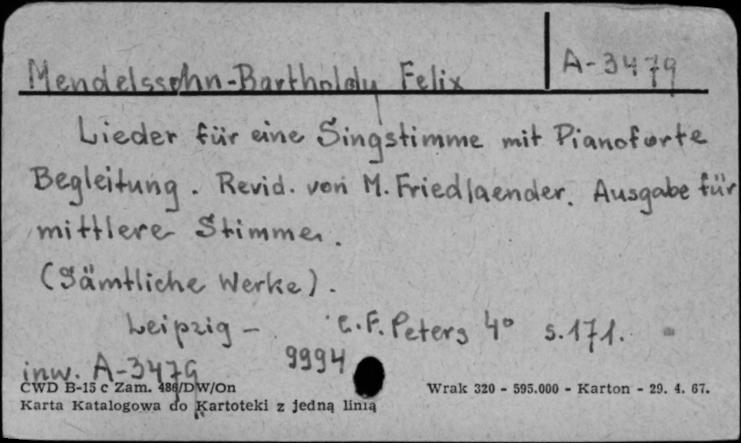 Mendelssohn-Bartholdy Felix
A-3479
Lieder für eine Singstimme mit Pianoforte
Begleitung. Revid. von M. Friedlaender. Ausgabe für
mittlere Stimme.
(Sämtliche Werke).
Leipzig - C.F. Peters 4° s. 171.
inw. A-3479 9994
CWD B-15 c Zam. 486/DW/On
Wrak 320 - 595.000 - Karton - 29. 4. 67.
Karta Katalogowa do Kartoteki z jedną linią